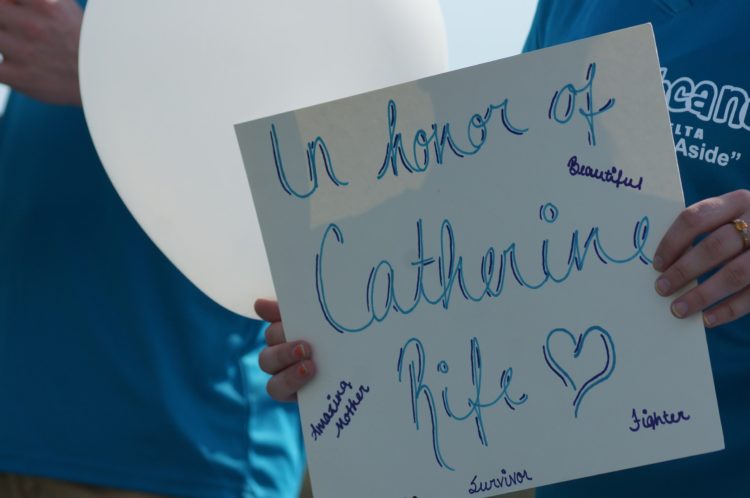 In honor of
Beautiful
Catherine
Rife
Amazing
Mother
Fighter
Survivor
Aside"